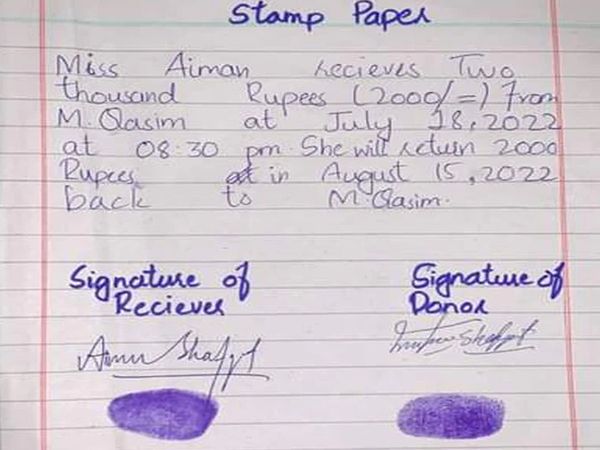 Stamp Paper
Miss Aiman recieves Two
thousand Rupees (2000/=) from
M.Qasim at July 18,2022
at 08:30 pm. She will return 2000
Rupees in August 15,2022
back to M.Qasim.
Signature of Signature of
Reciever Donor
Shafqt Shafqat